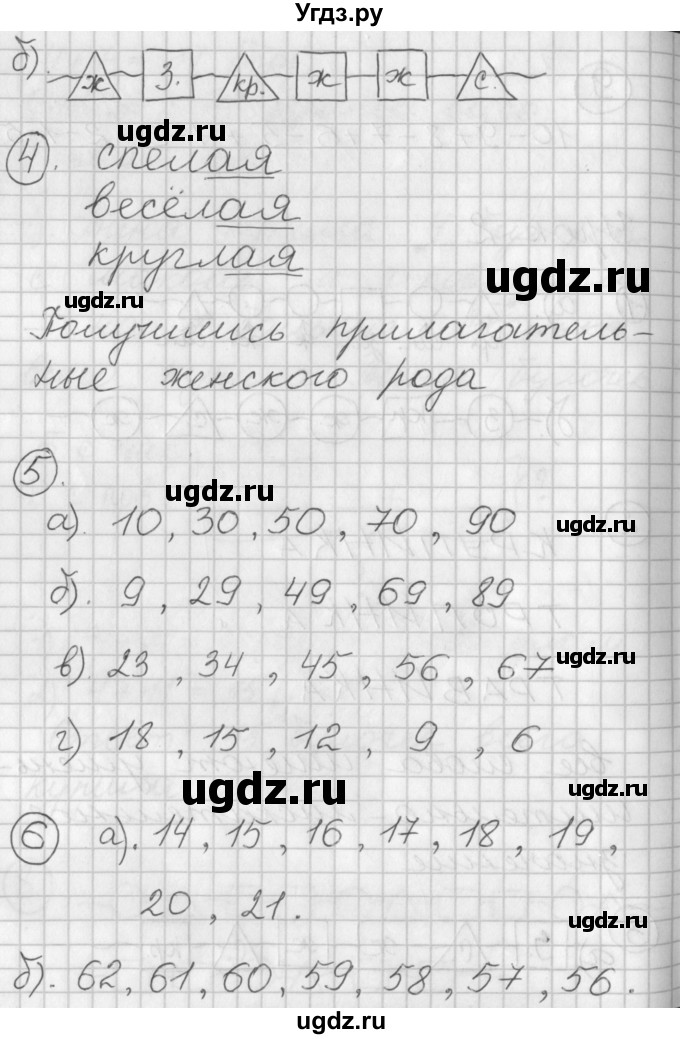 Угдз.ру
б). ж З. кр. ж ж с.
ugdz.ru
4. спелая
весёлая
ugdz.ru
круглая
ugdz.ru
Получились прилагатель-
ные женского рода
5.
ugdz.ru
а). 10, 30, 50, 70, 90
ugdz.ru
б). 9, 29, 49, 69, 89
в). 23, 34, 45, 56, 67
ugdz.ru
г). 18, 15, 12, 9, 6
ugdz.ru
ugdz.ru
6 а). 14, 15, 16, 17, 18, 19,
20, 21.
ugdz.ru
б). 62, 61, 60, 59, 58, 57, 56.
ugdz.ru